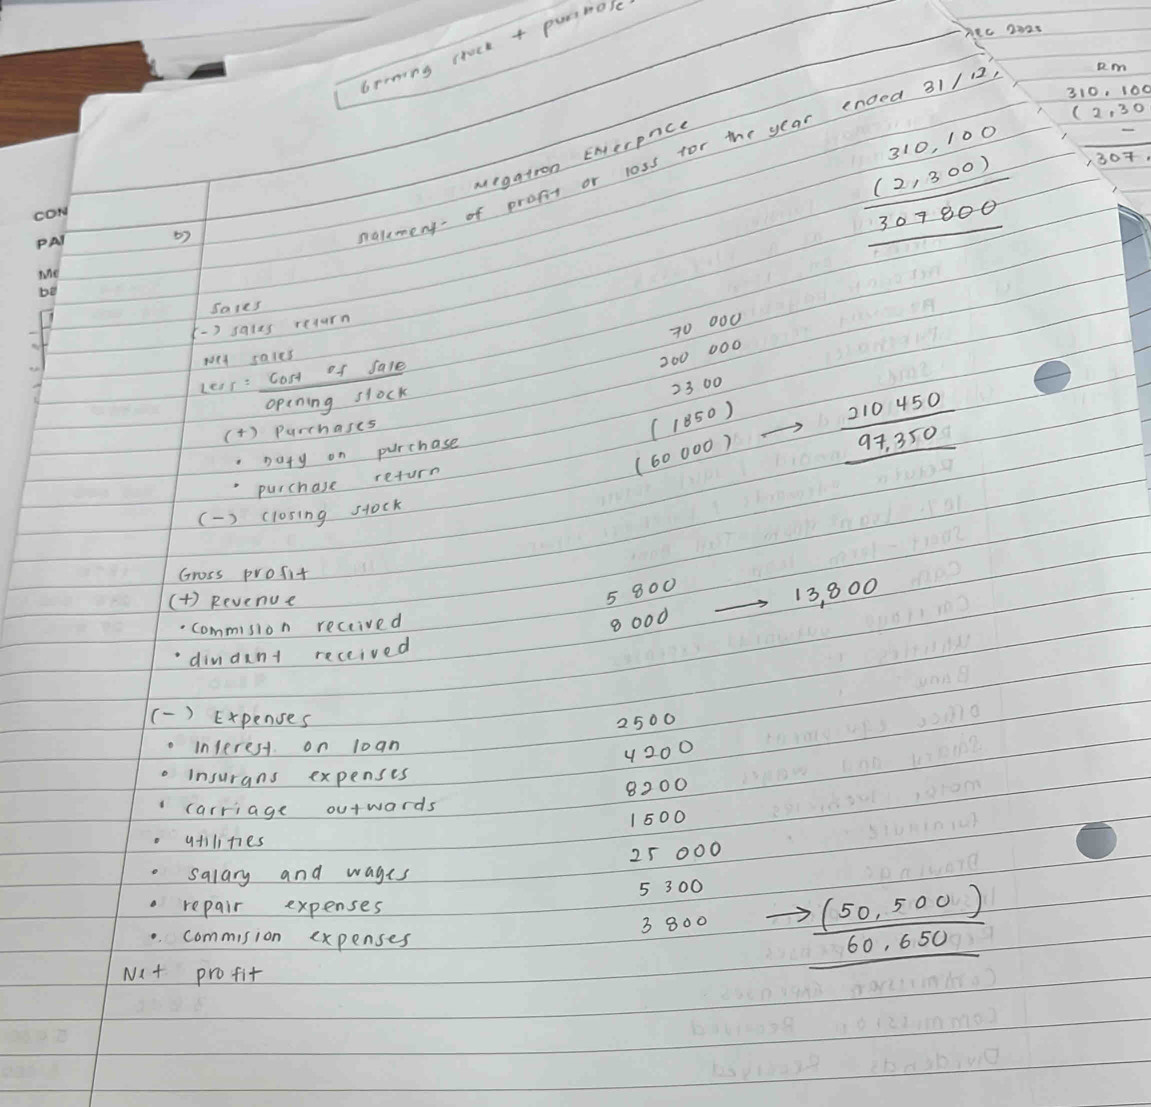 opening stock + purchase
Dec 202
Rm
310,100
(2,30
-
,307.
CON
PA
Me
be
b)
Megatron Enterprice
statement of profit or loss for the year ended 31/12,
Sales 310,100
(-) sales return (2,300)
Net sales 307800
Less: Cost of sale
opening stock 70 000
(+) Purchases 200 000
• Duty on purchase 2300
• purchase return (1850)
(-) closing stock (60 000) → 210 450
Gross profit 97,350
(+) Revenue
• commision received 5 800
• dindent received 8 000 → 13,800
(-) Expenses
• interest on loan 2500
• insurans expenses 4200
• carriage outwards 8200
• utilities 1500
• salary and wages 25 000
• repair expenses 5 300
• commision expenses 3 800 → (50,500)
Net profit 60,650